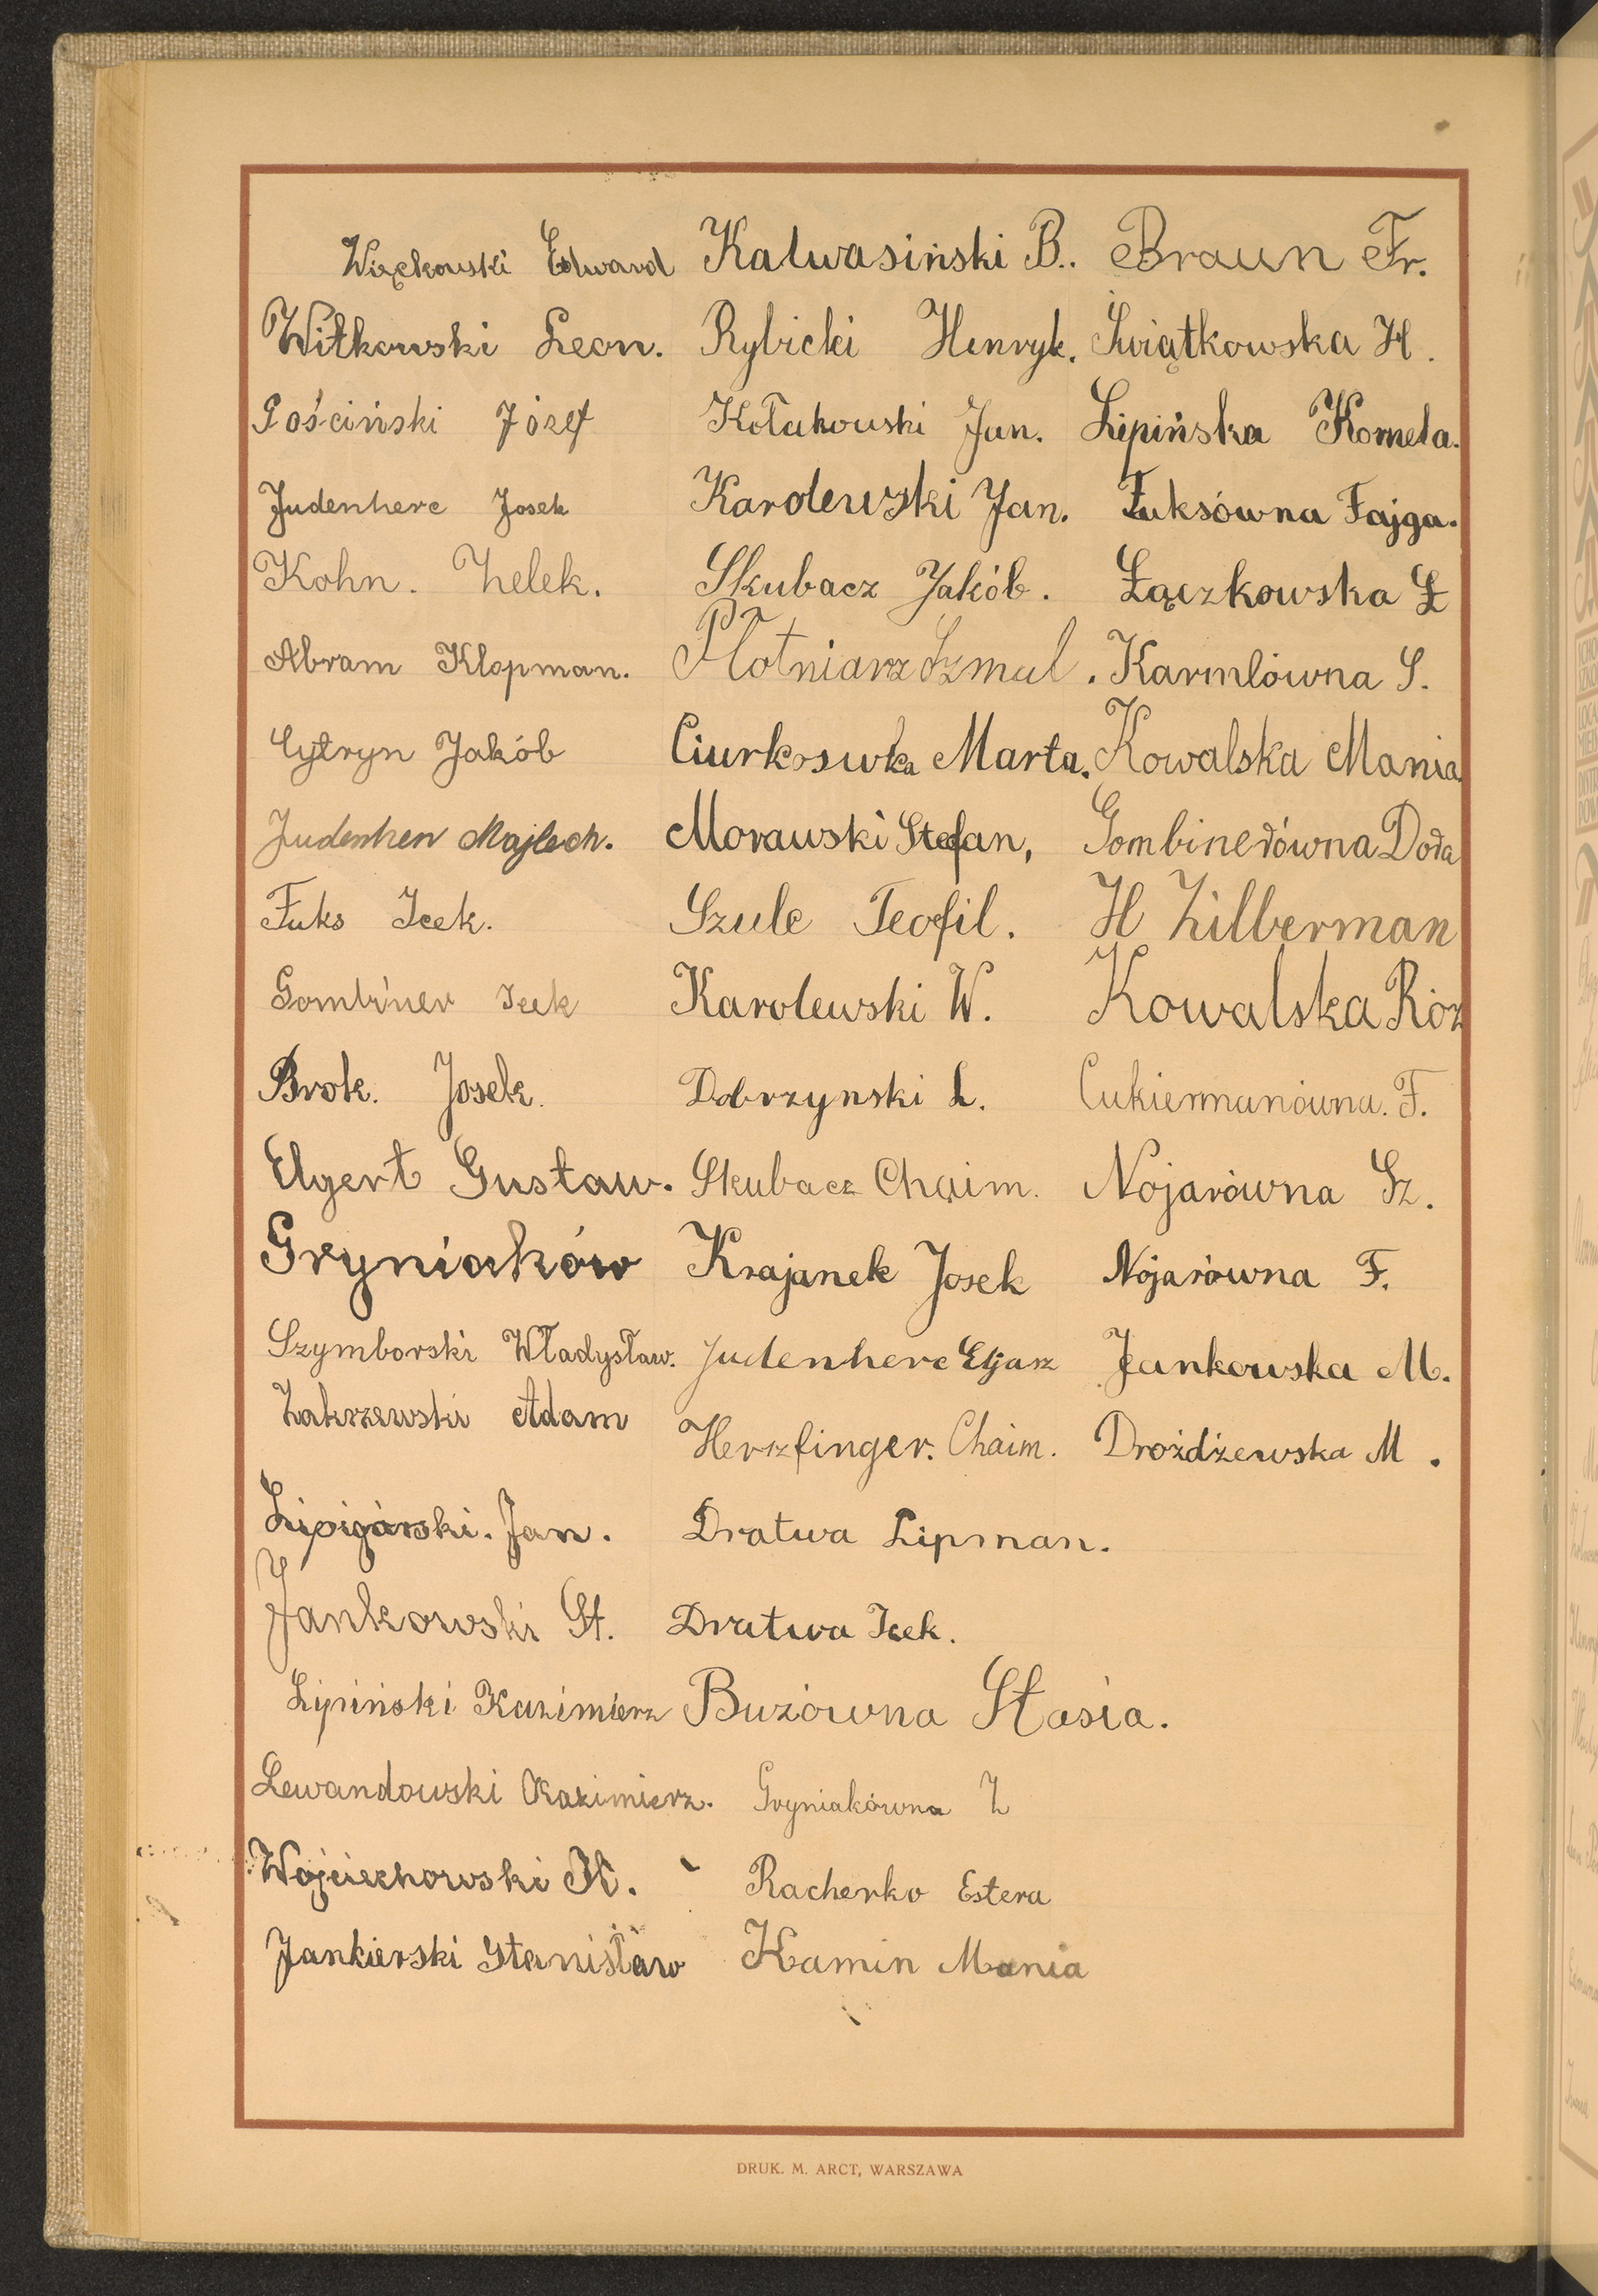 Więckowski Edward Kalwasiński B.. Braun Fr.
Witkowski Leon. Rybicki Henryk. Świątkowska H.
Gościński Józef Kołakowski Jan. Lipińska Kornela.
Judenherc Josek Karolewski Jan. Fuksówna Fajga.
Kohn. Helek. Skubacz Jakób. Łączkowska Ł
Abram Klopman. Płotniarz Szmul. Karmlówna S.
Cytryn Jakób Marta. Kowalska Mania
Majlech. Morawski Stefan, Gombinerówna Dora
Fuks Icek. Szulc Teofil. H Zilberman
Gombiner Icek Karolewski W. Kowalska Róz
Brok. Josek. Dobrzynski L. Cukiermanówna. F.
Elgert Gustaw. Skubacz Chaim. Nojarówna Sz.
Gryniaków Krajanek Josek Nojarówna F.
Szymborski Władysław. Judenherc Eljasz Jankowska M.
Zakrzewski Adam Herszfinger. Chaim. Drożdżewska M.
Jan. Dratwa Lipman.
Jankowski St. Dratwa Icek.
Lipiński Kazimierz Buzówna Stasia.
Lewandowski Kazimierz. Gryniakówna Z
Wojciechowski K. Racherko Estera
Jankierski Stanisław Kamin Mania
DRUK. M. ARCT, WARSZAWA